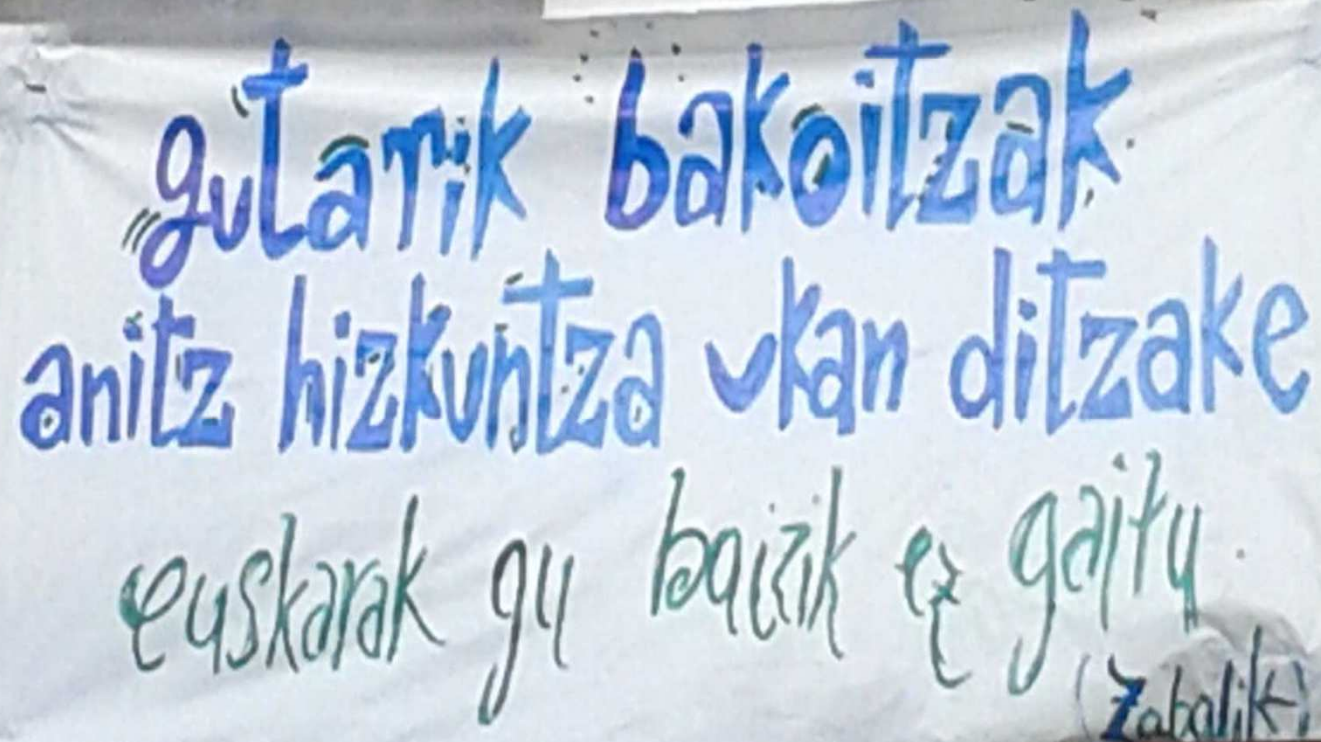 gutarik bakoitzak
anitz hizkuntza ukan ditzake
euskarak gu baizik ez gaitu.
(Zabalik)